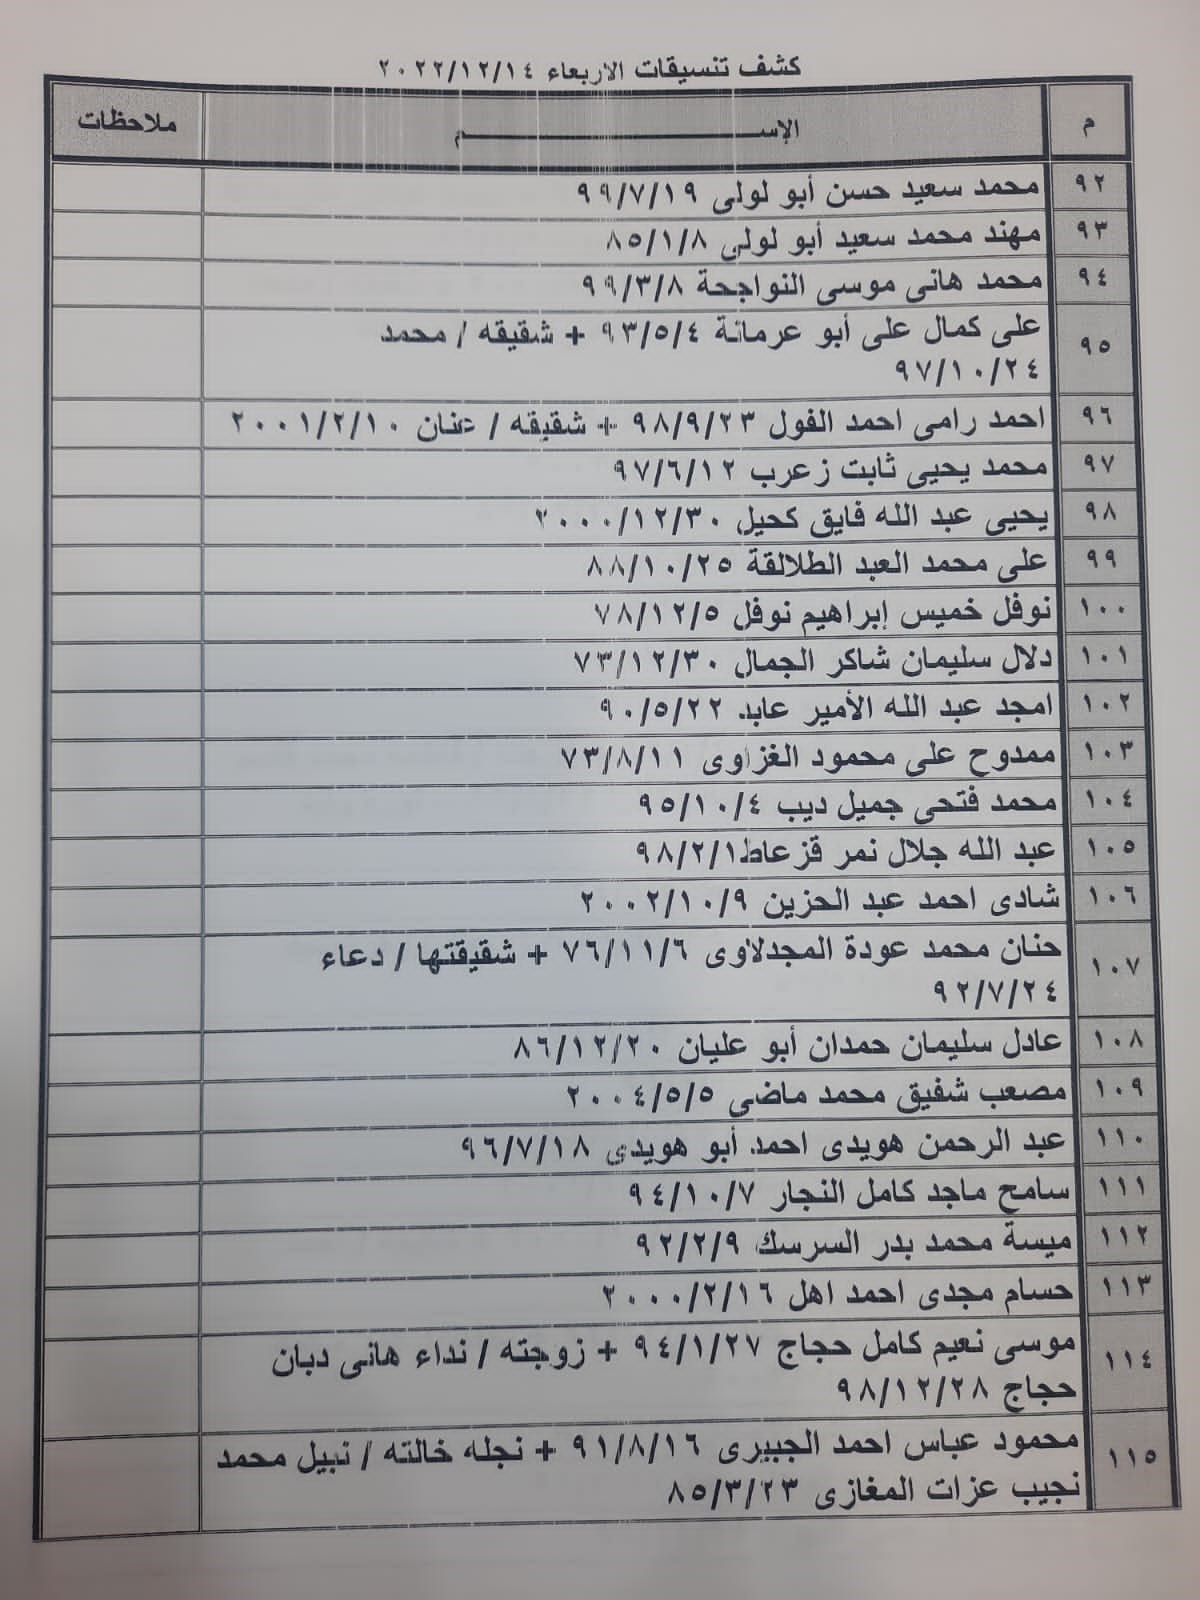 كشف تنسيقات الاربعاء ٢٠٢٢/١٢/١٤
م الإســـــــــم ملاحظات
٩٢ محمد سعيد حسن أبو لولى ٩٩/٧/١٩
٩٣ مهند محمد سعيد أبو لولى ٨٥/١/٨
٩٤ محمد هانى موسى النواجحة ٩٩/٣/٨
٩٥ على كمال على أبو عرمانة ٩٣/٥/٤ + شقيقه / محمد
٩٧/١٠/٢٤
٩٦ احمد رامى احمد الفول ٩٨/٩/٢٣ + شقيقه / عنان ٢٠٠١/٢/١٠
٩٧ محمد يحيى ثابت زعرب ٩٧/٦/١٢
٩٨ يحيى عبد الله فايق كحيل ٢٠٠٠/١٢/٣٠
٩٩ على محمد العبد الطلالقة ٨٨/١٠/٢٥
١٠٠ نوفل خميس إبراهيم نوفل ٧٨/١٢/٥
١٠١ دلال سليمان شاكر الجمال ٧٣/١٢/٣٠
١٠٢ امجد عبد الله الأمير عابد ٩٠/٥/٢٢
١٠٣ ممدوح على محمود الغزاوى ٧٣/٨/١١
١٠٤ محمد فتحى جميل ديب ٩٥/١٠/٤
١٠٥ عبد الله جلال نمر قزعاط ٩٨/٢/١
١٠٦ شادى احمد عبد الحزين ٢٠٠٢/١٠/٩
١٠٧ حنان محمد عودة المجدلاوى ٧٦/١١/٦ + شقيقتها / دعاء
٩٢/٧/٢٤
١٠٨ عادل سليمان حمدان أبو عليان ٨٦/١٢/٢٠
١٠٩ مصعب شفيق محمد ماضى ٢٠٠٤/٥/٥
١١٠ عبد الرحمن هويدى احمد أبو هويدى ٩٦/٧/١٨
١١١ سامح ماجد كامل النجار ٩٤/١٠/٧
١١٢ ميسة محمد بدر السرسك ٩٢/٢/٩
١١٣ حسام مجدى احمد اهل ٢٠٠٠/٢/١٦
١١٤ موسى نعيم كامل حجاج ٩٤/١/٢٧ + زوجته / نداء هانى دبان
حجاج ٩٨/١٢/٢٨
١١٥ محمود عباس احمد الجبيرى ٩١/٨/١٦ + نجله خالته / نبيل محمد
نجيب عزات المغازى ٨٥/٣/٢٣